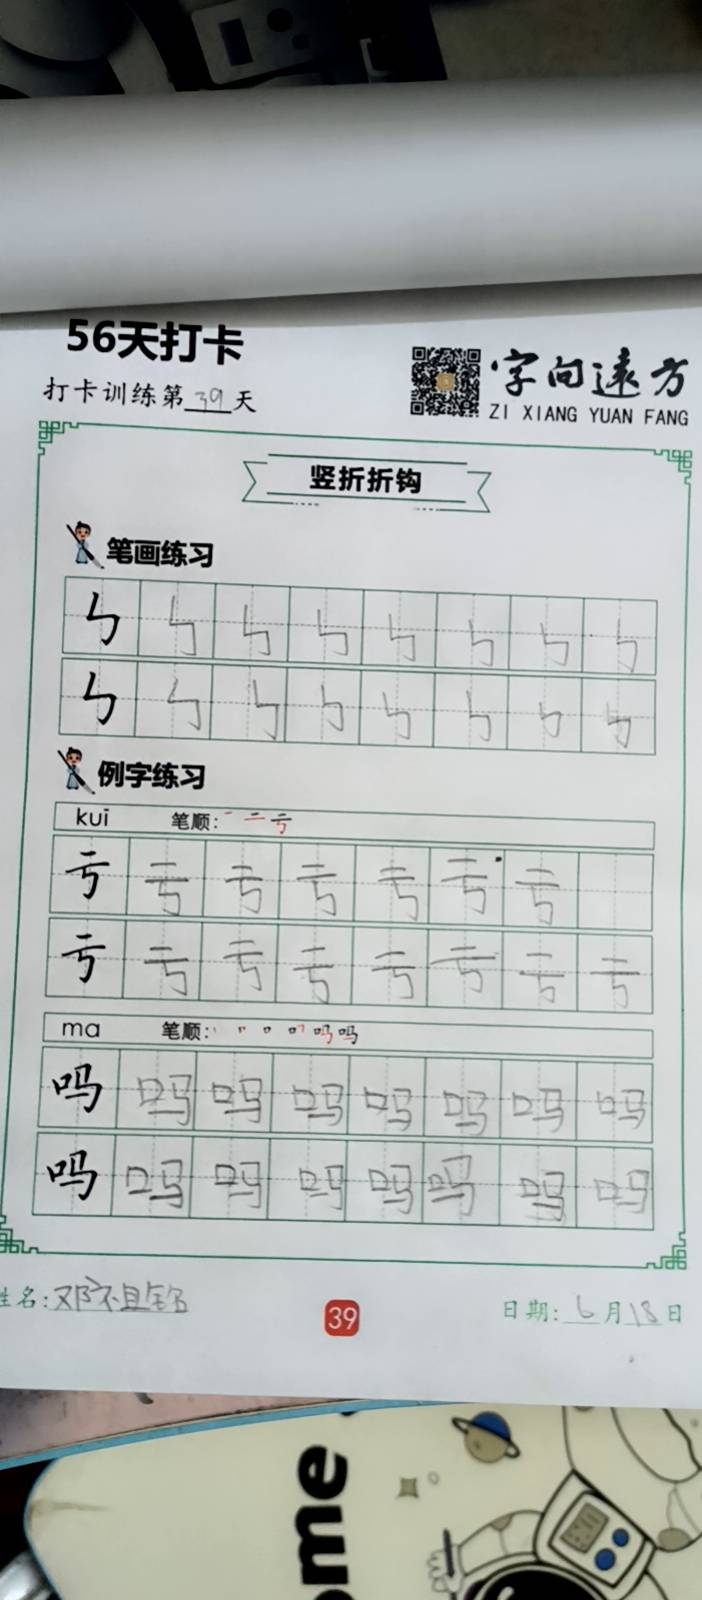 56天打卡
打卡训练第39天
字向远方
ZI XIANG YUAN FANG
竖折折钩
笔画练习
㇉ ㇉ ㇉ ㇉ ㇉ ㇉ ㇉ ㇉
㇉ ㇉ ㇉ ㇉ ㇉ ㇉ ㇉ ㇉
例字练习
kui 笔顺: 一 二 亏
亏 亏 亏 亏 亏 亏 亏
亏 亏 亏 亏 亏 亏 亏 亏
ma 笔顺:
吗 吗 吗 吗 吗 吗 吗 吗
吗 吗 吗 吗 吗 吗 吗 吗
姓名:邓祖铭
39
日期:6月18日
ome